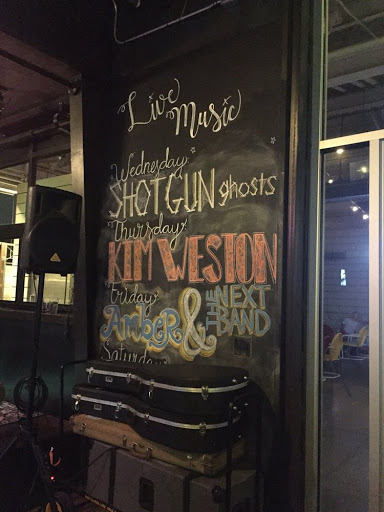 Live
Music
Wednesday
SHOTGUN ghosts
Thursday
KIM WESTON
Friday
AMBER & THE NEXT BAND
Saturday